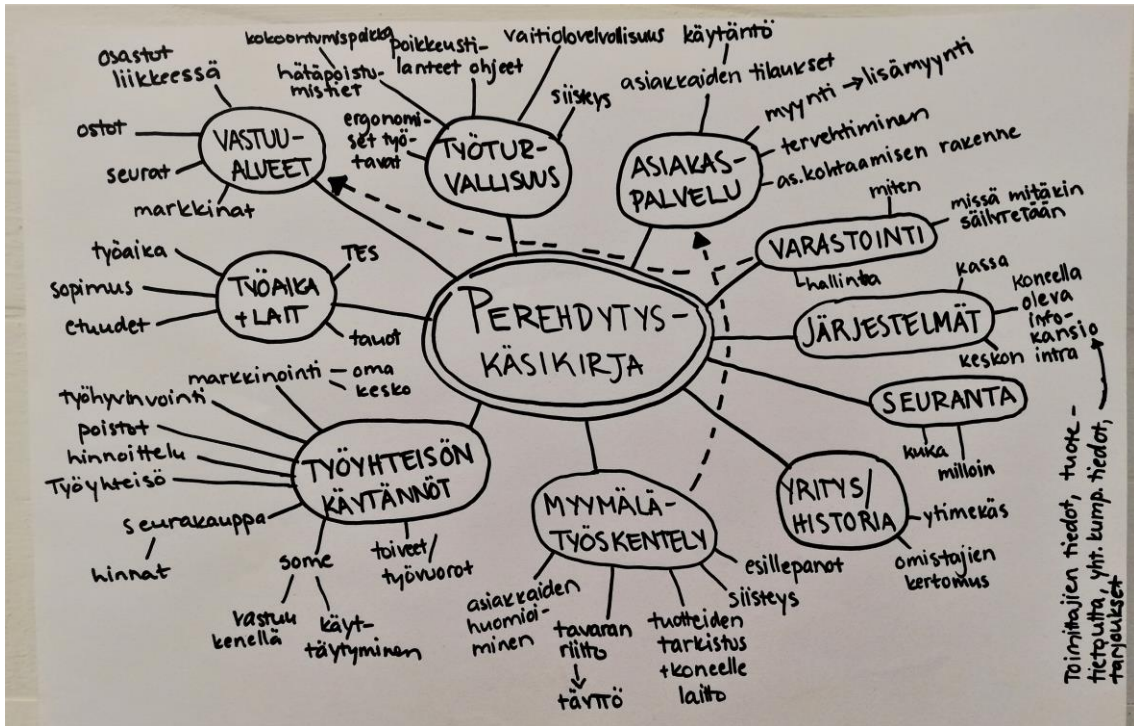 PEREHDYTYS-
KÄSIKIRJA
VASTUU-
ALUEET
osastot
liikkeessä
ostot
seurat
markkinat
TYÖTUR-
VALLISUUS
kokoontumispaikka
hätäpoistu-
mistiet
poikkeusti-
lanteet ohjeet
vaitiolovelvollisuus
siisteys
ergonomi-
set työ-
tavat
ASIAKAS-
PALVELU
käytäntö
asiakkaiden tilaukset
myynti → lisämyynti
tervehtiminen
as.kohtaamisen rakenne
VARASTOINTI
miten
missä mitäkin
säilytetään
hallinta
JÄRJESTELMÄT
kassa
koneella
oleva
info-
kansio
keskon intra
Toimittajien tiedot, tuote-
tietoutta, yht. kump. tiedot,
tarjoukset
SEURANTA
kuka
milloin
YRITYS/
HISTORIA
ytimekäs
omistajien
kertomus
MYYMÄLÄ-
TYÖSKENTELY
esillepanot
siisteys
tuotteiden
tarkistus
+koneelle
laitto
tavaran
riitto
↓
täyttö
asiakkaiden
huomioi-
minen
TYÖYHTEISÖN
KÄYTÄNNÖT
markkinointi - oma
- kesko
työhyvinvointi
poistot
hinnoittelu
Työyhteisö
seurakauppa
hinnat
some
vastuu
kenellä
käyt-
täytyminen
toiveet/
työvuorot
TYÖAIKA
+LAIT
työaika
sopimus
etuudet
TES
tauot